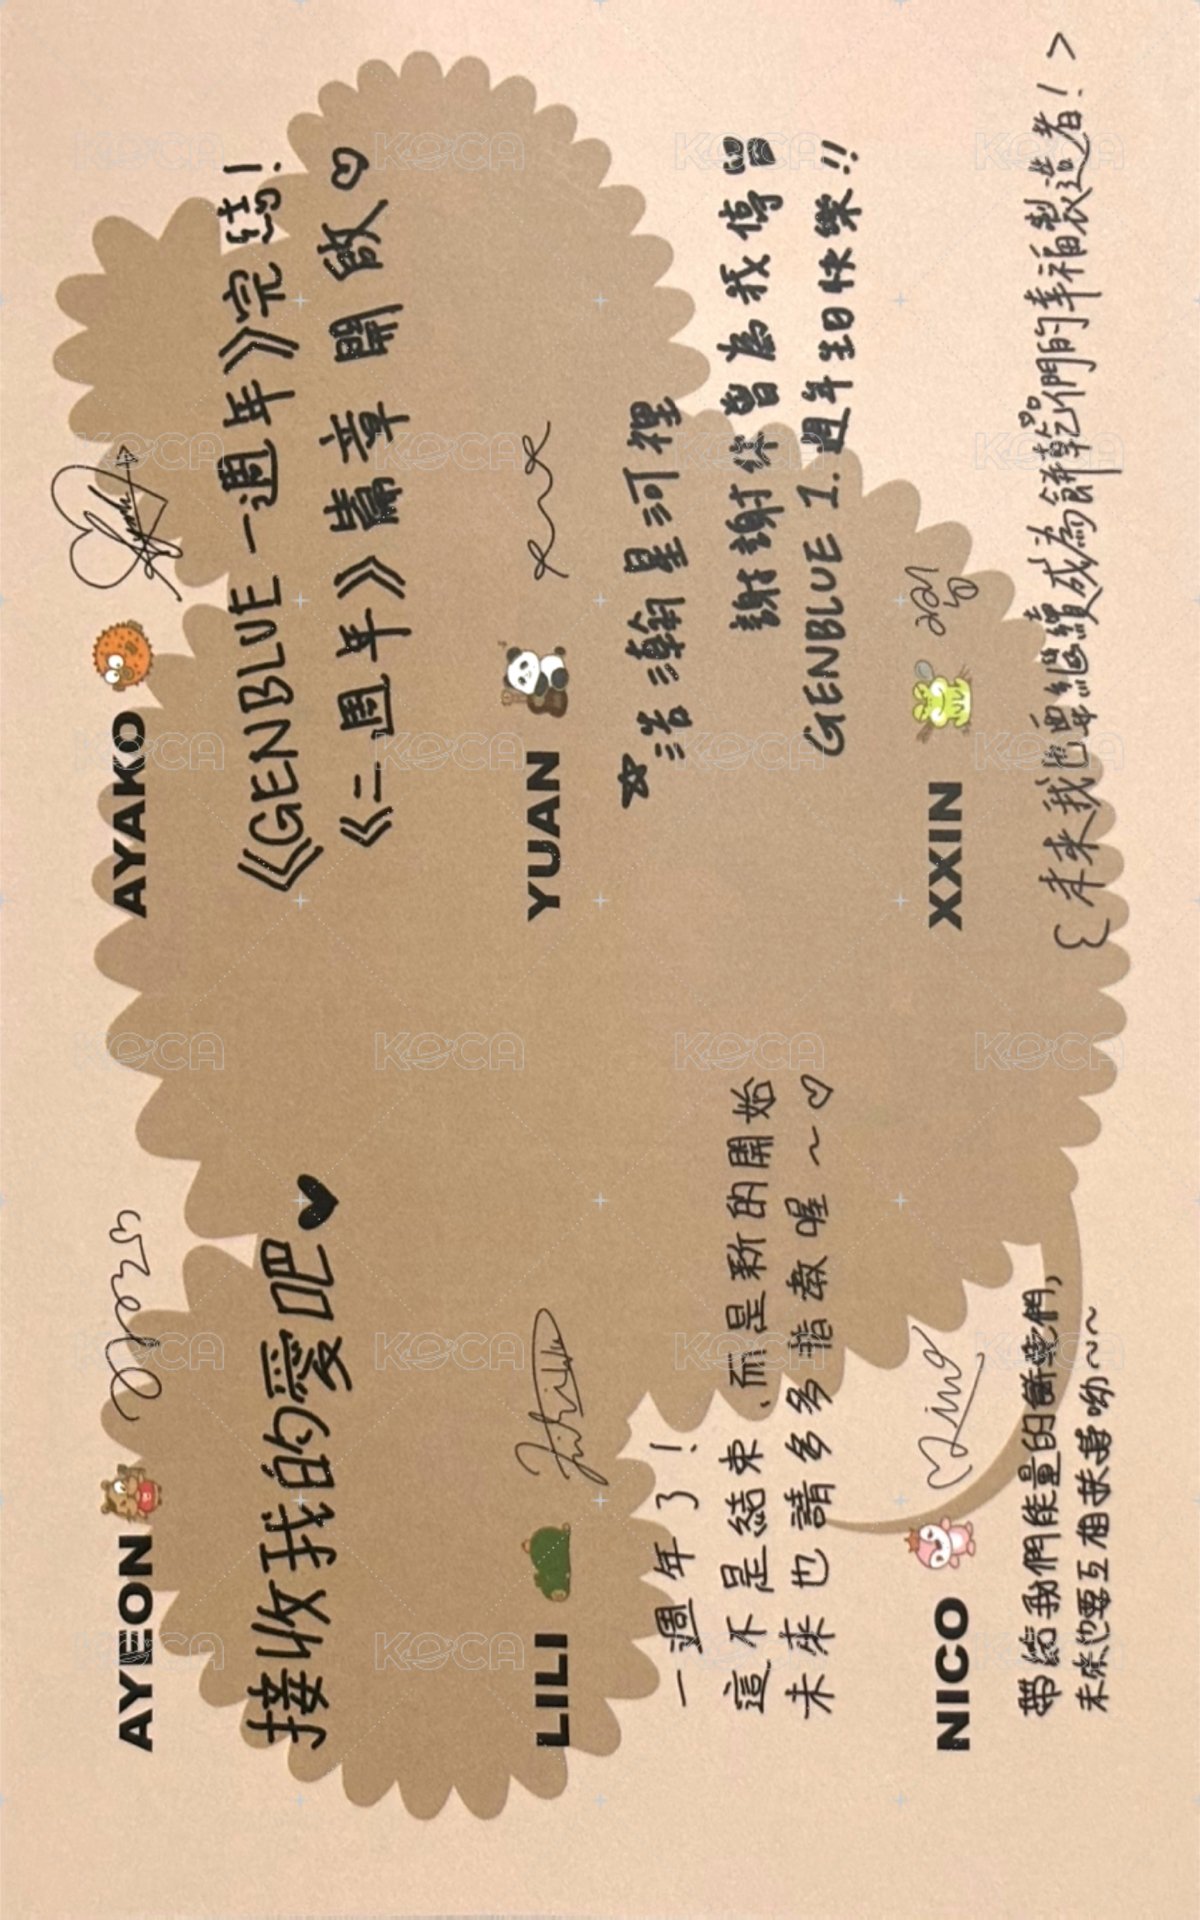 AYEON
接收我的愛吧♥
AYAKO
《GENBLUE 一週年》完結!
《二週年》篇章開啟♡
LILI
一週年了!
這不是結束、而是新的開始
未來也請多多指教喔~♡
YUAN
☆浩瀚星河裡
謝謝你曾為我停留
GENBLUE 1.週年生日快樂!!
NICO
Ning
帶給我們能量的餅乾們,
未來也要互相扶蕎呦~~
XXIN
{未來我也要繼續成為餅乾們的幸福製造者!>
KOCA